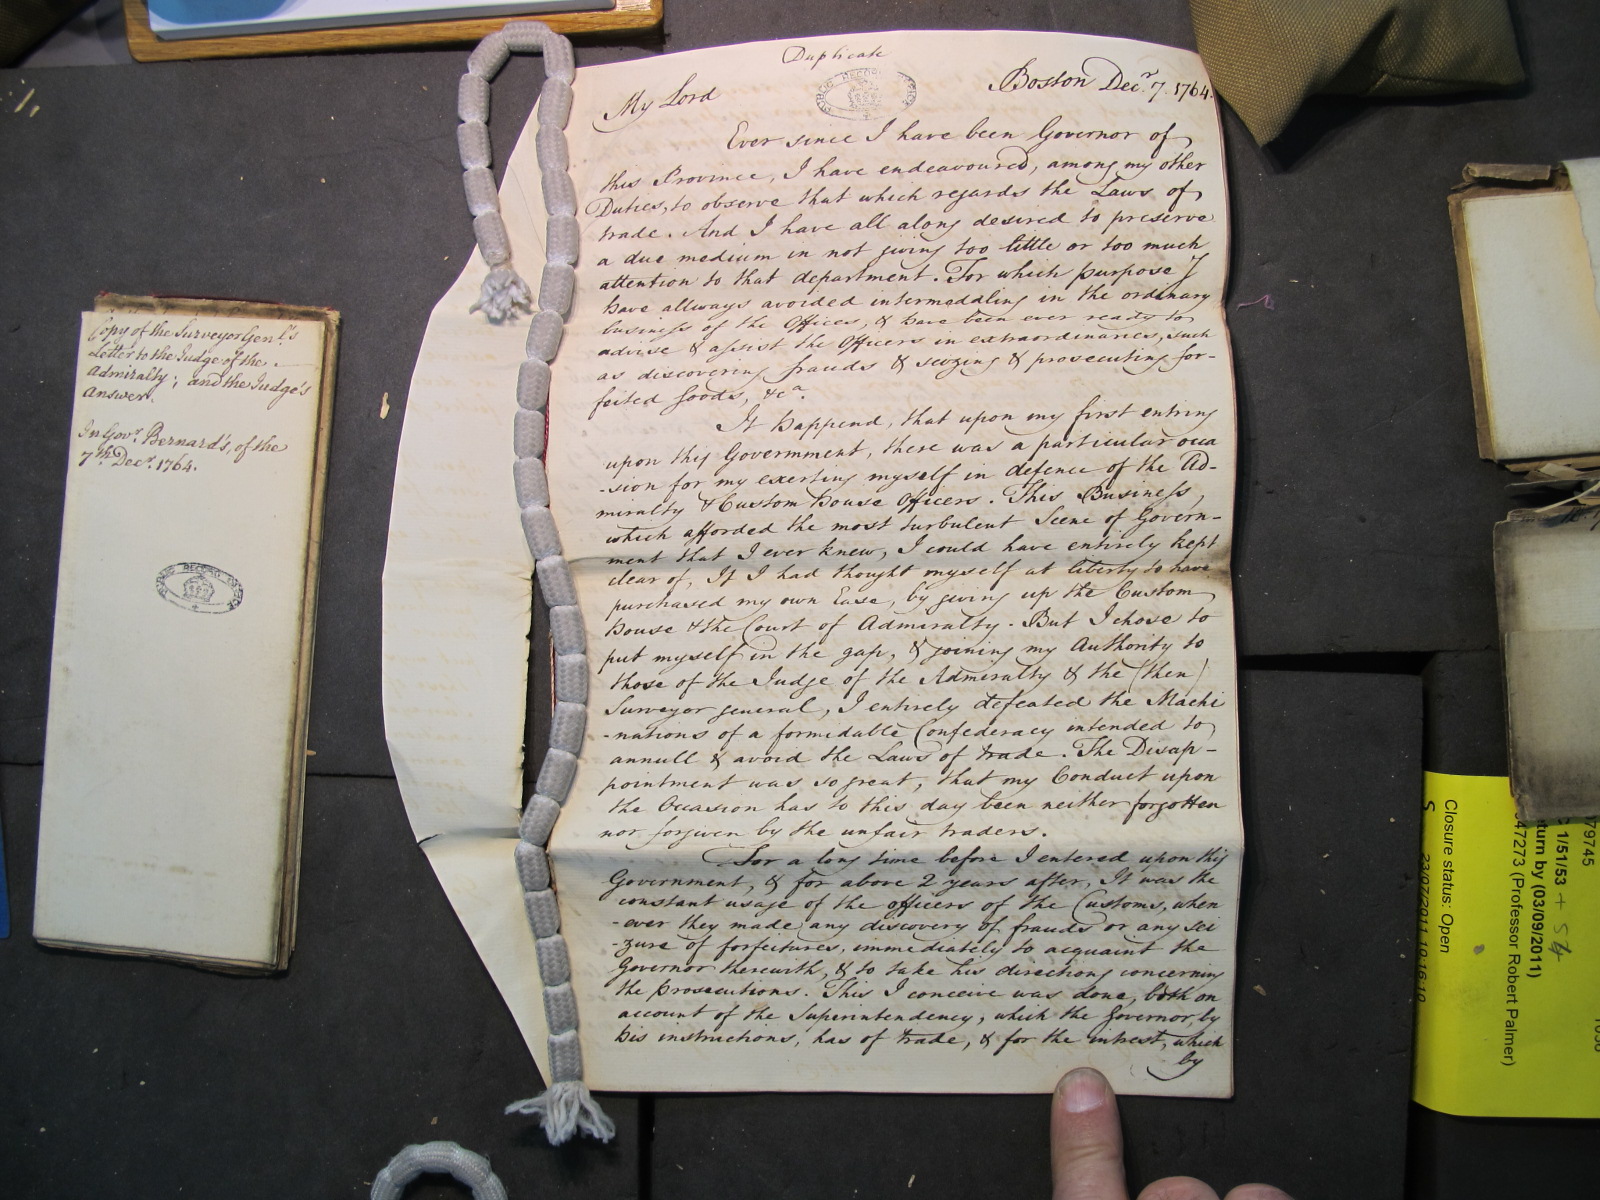 Copy of the Surveyor Gen.l's
Letter to the Judge of the
Admiralty; and the Judge's
Answer.
In Gov.r Bernard's, of the
7th Dec.r 1764.
PUBLIC RECORD OFFICE
Duplicate
PUBLIC RECORD OFFICE
Boston Dec.r 7. 1764.
My Lord
Ever since I have been Governor of
this Province, I have endeavoured, among my other
Duties, to observe that which regards the Laws of
trade. And I have all along desired to preserve
a due medium in not giving too little or too much
attention to that department. For which purpose I
have allways avoided intermeddling in the ordinary
business of the Offices, & have been ever ready to
advise & assist the Officers in extraordinaries, such
as discovering frauds & seizing & prosecuting for-
feited goods, &c.a
It happend, that upon my first entring
upon this Government, there was a particular occa
-sion for my exerting myself in defence of the Ad-
miralty & Custom house Officers. This Business,
which afforded the most turbulent Scene of Govern-
ment that I ever knew, I could have entirely kept
clear of, If I had thought myself at liberty to have
purchased my own Ease, by giving up the Custom
house & the Court of Admiralty. But I chose to
put myself in the gap, & joining my Authority to
those of the Judge of the Admiralty & the (then)
Surveyor general, I entirely defeated the Machi
-nations of a formidable Confederacy intended to
annull & avoid the Laws of trade. The Disap-
pointment was so great, that my Conduct upon
the Occasion has to this day been neither forgotten
nor forgiven by the unfair traders.
For a long time before I entered upon this
Government, & for above 2 years after, It was the
constant usage of the officers of the Customs, when
-ever they made any discovery of frauds or any sei
-zure of forfeitures, immediately to acquaint the
Governor therewith, & to take his directions concerning
the prosecutions. This I conceive was done, both on
account of the Superintendency, which the Governor, by
his instructions, has of trade, & for the intrest, which
by
79745
1/51/53 + 54
turn by (03/09/2011)
47273 (Professor Robert Palmer)
Closure status: Open
S 23/07/2011 10:16:10